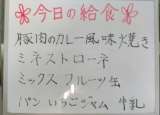 今日の給食
豚肉のカレー風味焼き
ミネストローネ
ミックスフルーツ缶
パン いちごジャム 牛乳